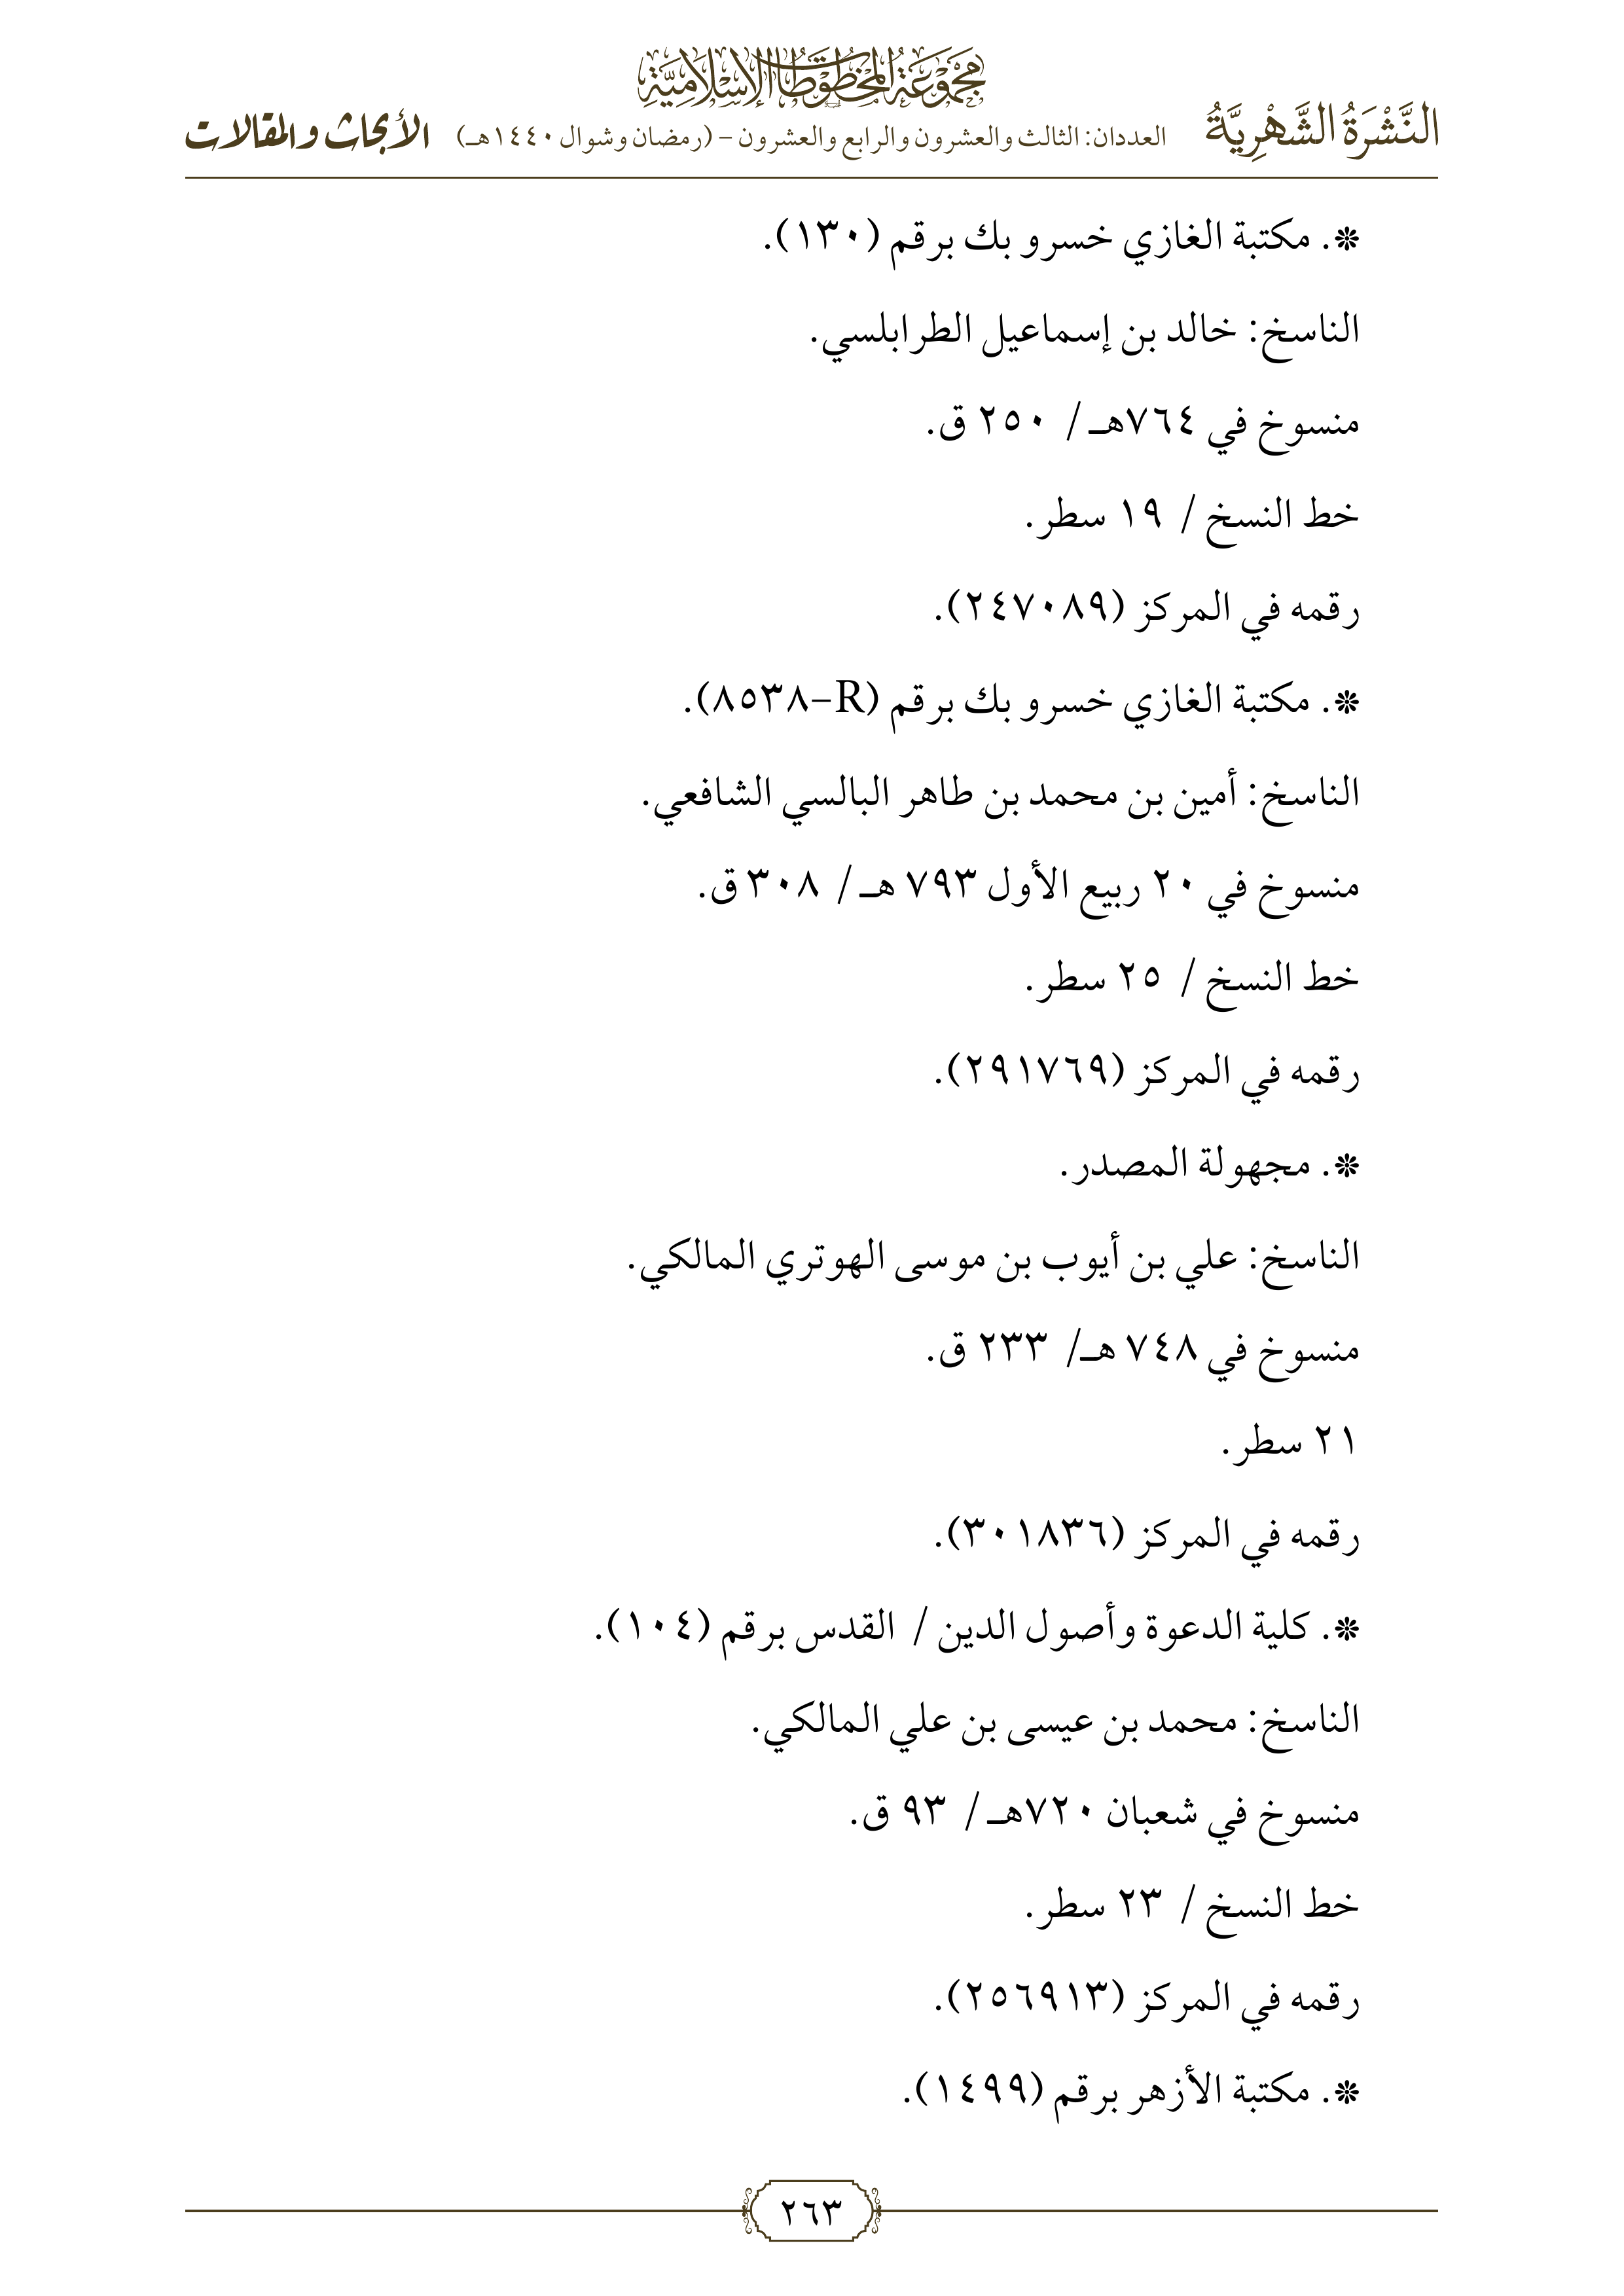 مجموعة المخطوطات الإسلامية
النَّشْرَةُ الشَّهْرِيَّةُ العددان: الثالث والعشرون والرابع والعشرون – (رمضان وشوال ١٤٤٠هـ) الأبحاث والمقالات
❊. مكتبة الغازي خسرو بك برقم (١٣٠).
الناسخ: خالد بن إسماعيل الطرابلسي.
منسوخ في ٧٦٤هـ / ٢٥٠ ق.
خط النسخ / ١٩ سطر.
رقمه في المركز (٢٤٧٠٨٩).
❊. مكتبة الغازي خسرو بك برقم (R–٨٥٣٨).
الناسخ: أمين بن محمد بن طاهر البالسي الشافعي.
منسوخ في ٢٠ ربيع الأول ٧٩٣ هـ / ٣٠٨ ق.
خط النسخ / ٢٥ سطر.
رقمه في المركز (٢٩١٧٦٩).
❊. مجهولة المصدر.
الناسخ: علي بن أيوب بن موسى الهوتري المالكي.
منسوخ في ٧٤٨ هـ/ ٢٣٣ ق.
٢١ سطر.
رقمه في المركز (٣٠١٨٣٦).
❊. كلية الدعوة وأصول الدين / القدس برقم (١٠٤).
الناسخ: محمد بن عيسى بن علي المالكي.
منسوخ في شعبان ٧٢٠هـ / ٩٣ ق.
خط النسخ / ٢٣ سطر.
رقمه في المركز (٢٥٦٩١٣).
❊. مكتبة الأزهر برقم (١٤٩٩).
٢٦٣